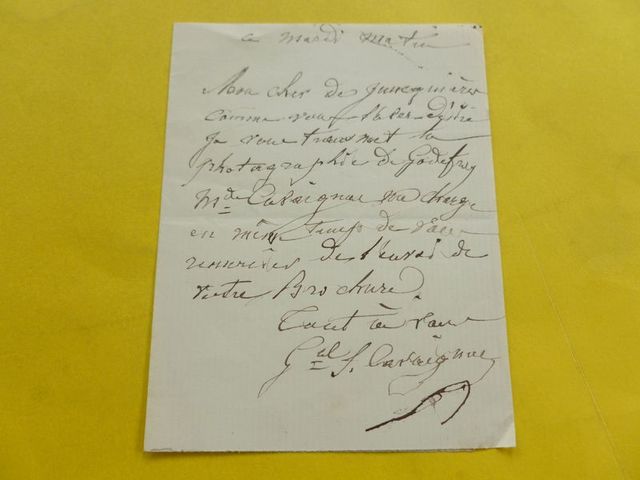 ce mardi matin
Mon cher de Junquières
comme vous l'avez désiré
je vous transmet la
photographie de Godefroy
Mde Cavaignac me charge
en même temps de vous
remercier de l'envoi de
votre Brochure.
Tout à vous
Gal J. Cavaignac